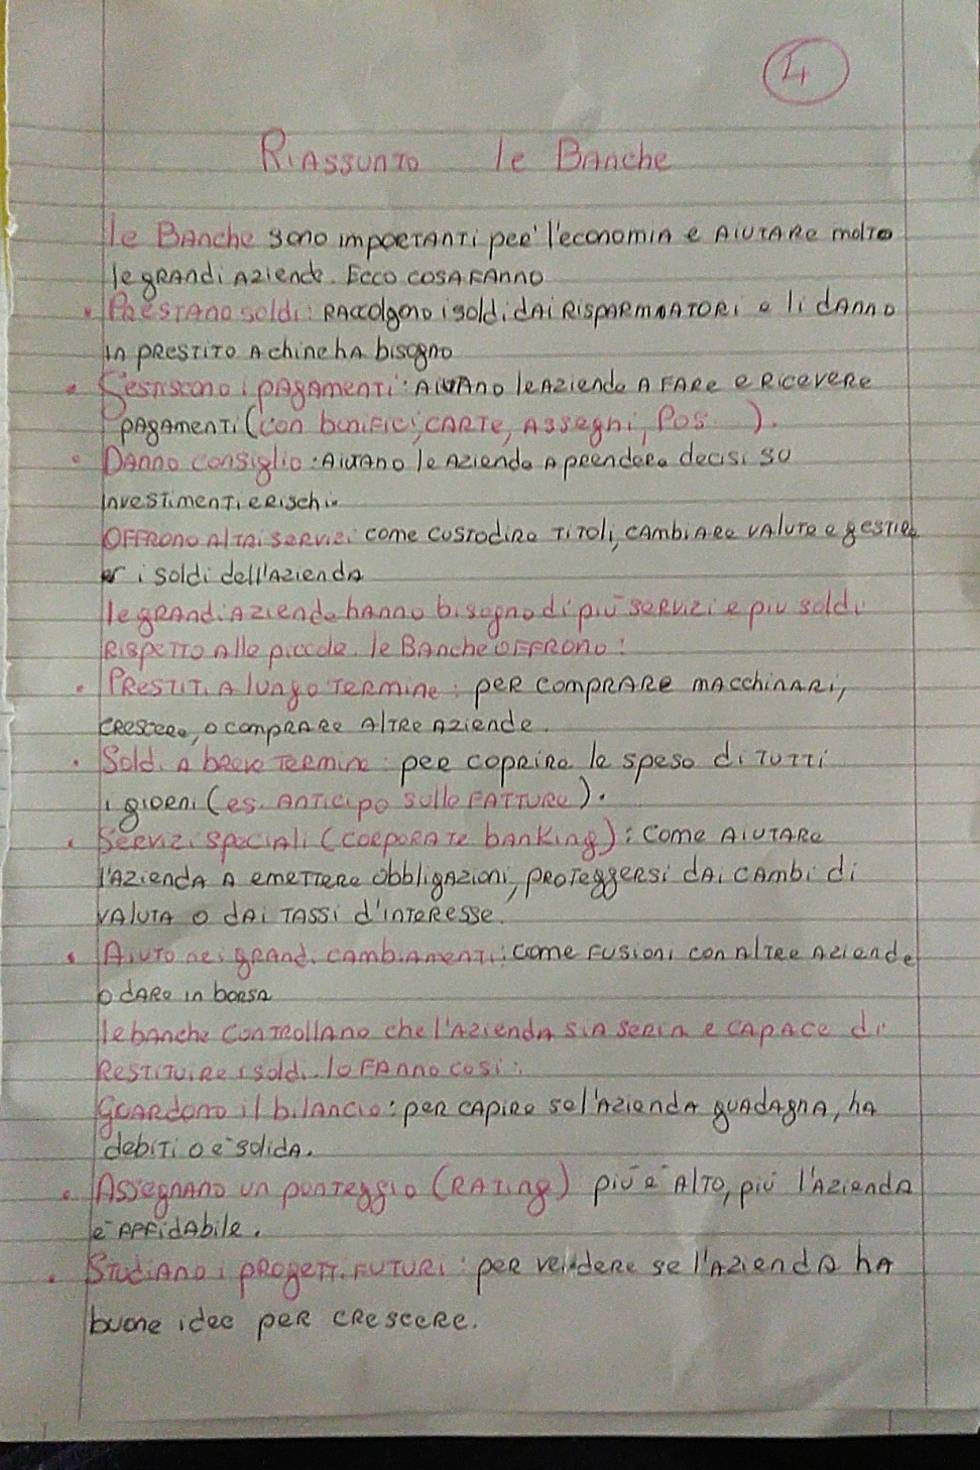 4
RIASSUNTO le BANche
le BANche sono IMPORTANTI per l'economIA e AIUTARe molTo
le gRANdi AZIende. Ecco cosA FANNO
• PRESTANo soldi: RACColgono i soldi dAI RISPARMIATORI e li dANNO
IN PRESTITO A chi ne hA bisogno
• GesTIscono i pAgAmenTi: AIUTAno le AZIende A FARE e RICevere
PAgAmenTi (con bonifici, CARTE, ASSegni, POS ).
• DAnno consiglio: AIUTANo le AZIende A prendere decisi su
InveSTImenTi e RISchi.
OFFRONO AlTRi seRvizi come cusTodire TITOli, CAmbiARe vAluTe e gesTIRe
i soldi dell'AZIendA
le gRANdi AZIende hAnno bisogno di più seRvizi e più soldi
RISpeTTo Alle piccole. le BANche OFFRONO:
• PRESTITi A lungo TeRmine: peR compRARe mAcchinARi,
cRescere, o compRARe AlTRe AZIende.
• Soldi A bReve TeRmine: per coprire le spese di TuTTi
i gioRni (es. ANTicipo sulle FATTURe).
• Servizi speciAli (CORpORATe bAnKing): Come AIUTARe
l'AZIendA A emeTTere obbligAzioni, pRoTeggersi dAi cAmbi di
vAluTA o dAi TASSi d'inTeResse.
• AIUTo nei gRANdi cAmbiAmenTi: come Fusioni con AlTRe AZIende
o dARe in boRsA
le bAnche conTRollAno che l'AZIendA siA seRiA e cApAce di
RESTITUIRe i soldi. lo FAnno cosi:
GuARdono il bilAncio: per cApiRe se l'AZIendA guAdAgnA, hA
debiTi o è solidA.
• ASSegnAno un punTeggio (RATing) più è AlTo, più l'AZIendA
è AFFidAbile.
• STudiAno i pRogeTTi FuTuRi: per veddere se l'AZIendA hA
buone idee peR cRescere.